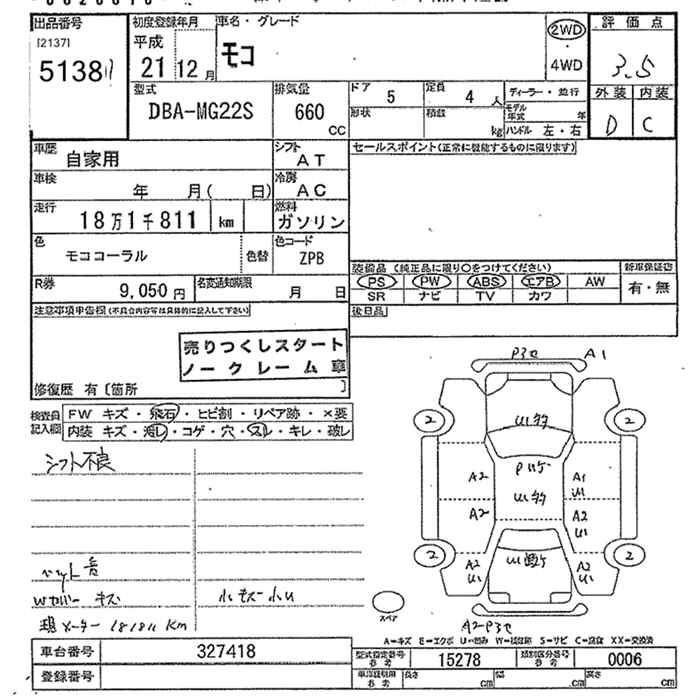 出品番号
[2137]
5138
初度登録年月
平成
21 12 月
車名・グレード
モコ
2WD
4WD
評価点
3.5
外装 内装
D C
型式
DBA-MG22S
排気量
660
CC
ドア 5
定員 4 人
形状
積数 kg
ディーラー・並行
モデル年式 年
ハンドル 左・右
車歴 自家用
シフト AT
セールスポイント(正常に機能するものに限ります)
車検 年 月( 日)
冷房 AC
走行 18万1千811 km
燃料 ガソリン
色 モココーラル 色替
色コード ZPB
装備品 (純正品に限り○をつけてください)
新車保証書
PS PW ABS エアB AW
有・無
SR ナビ TV カワ
R券 9,050 円
名変通知期限 月 日
後日品
注意事項申告欄(不具合内容等は具体的に記入して下さい)
売りつくしスタート
ノークレーム車
修復歴 有〔箇所 〕
検査員記入欄
FW キズ・飛石・ヒビ割・リペア跡・×要
内装 キズ・汚レ・コゲ・穴・スレ・キレ・破レ
シフト不良
ペット
Wカバー キズ
小キズ 小U
現メーター 181811 Km
P3セ A1
2 2
A2 A1
U1
A2 A2
U1
2 2
A2 A2
U1 U1
スペア
A2 P3セ
A=キズ E=エクボ U=凹み W=補修跡 S=サビ C=腐食 XX=交換済
車台番号 327418
型式指定番号 参考 15278
類別区分番号 参考 0006
登録番号
車庫証明用 参考
長さ cm
幅 cm
高さ cm